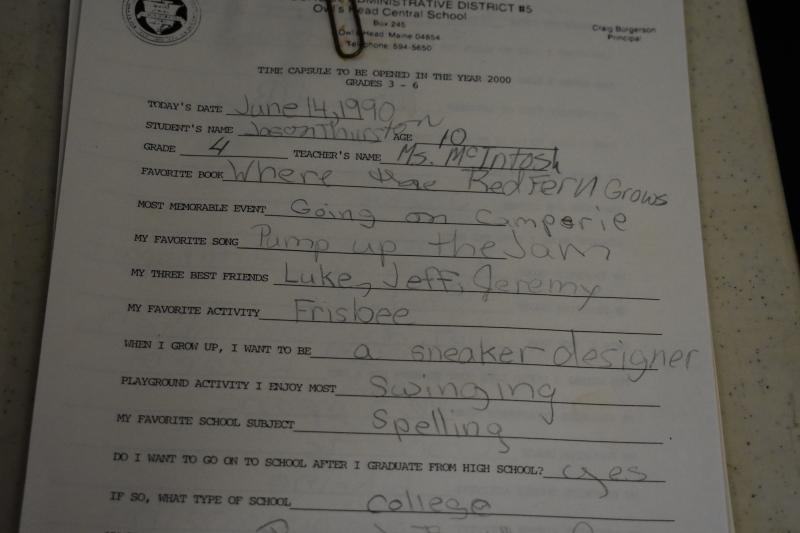 ADMINISTRATIVE DISTRICT #5
Owl's Head Central School
Box 245
Owl's Head, Maine 04854
Telephone: 594-5650
Craig Burgerson
Principal
TIME CAPSULE TO BE OPENED IN THE YEAR 2000
GRADES 3 - 6
TODAY'S DATE June 14, 1990
STUDENT'S NAME Jason Thurston AGE 10
GRADE 4 TEACHER'S NAME Ms. McIntosh
FAVORITE BOOK Where the Red Fern Grows
MOST MEMORABLE EVENT Going on Camporie
MY FAVORITE SONG Pump up the Jam
MY THREE BEST FRIENDS Luke, Jeff, Jeremy
MY FAVORITE ACTIVITY Frisbee
WHEN I GROW UP, I WANT TO BE a sneaker designer
PLAYGROUND ACTIVITY I ENJOY MOST Swinging
MY FAVORITE SCHOOL SUBJECT Spelling
DO I WANT TO GO ON TO SCHOOL AFTER I GRADUATE FROM HIGH SCHOOL? yes
IF SO, WHAT TYPE OF SCHOOL College